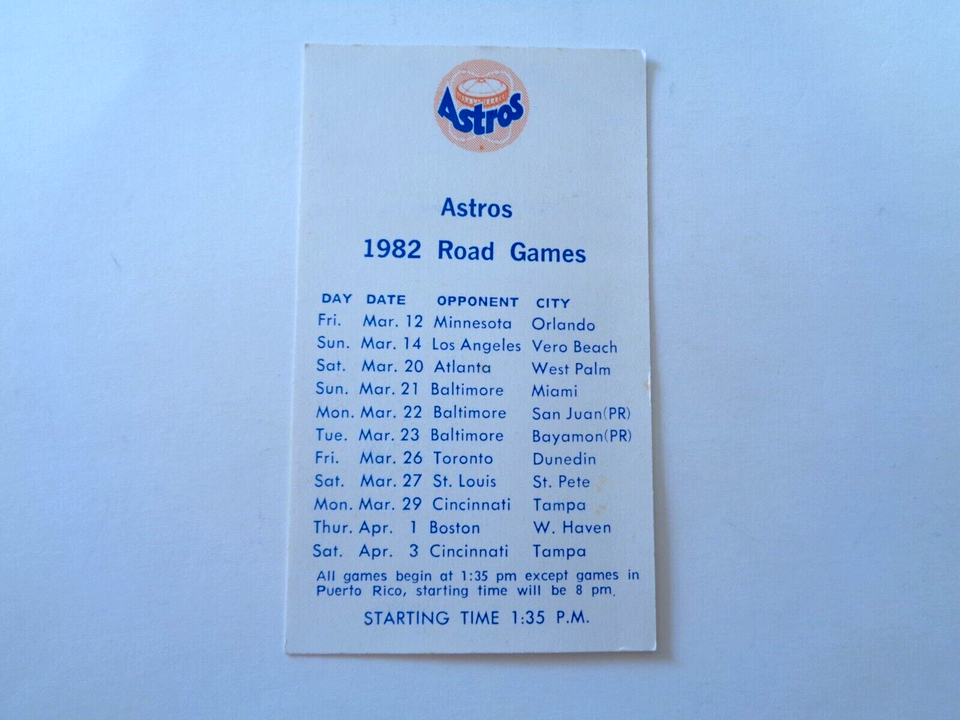 Astros
Astros
1982 Road Games
DAY DATE OPPONENT CITY
Fri. Mar. 12 Minnesota Orlando
Sun. Mar. 14 Los Angeles Vero Beach
Sat. Mar. 20 Atlanta West Palm
Sun. Mar. 21 Baltimore Miami
Mon. Mar. 22 Baltimore San Juan(PR)
Tue. Mar. 23 Baltimore Bayamon(PR)
Fri. Mar. 26 Toronto Dunedin
Sat. Mar. 27 St. Louis St. Pete
Mon. Mar. 29 Cincinnati Tampa
Thur. Apr. 1 Boston W. Haven
Sat. Apr. 3 Cincinnati Tampa
All games begin at 1:35 pm except games in
Puerto Rico, starting time will be 8 pm.
STARTING TIME 1:35 P.M.